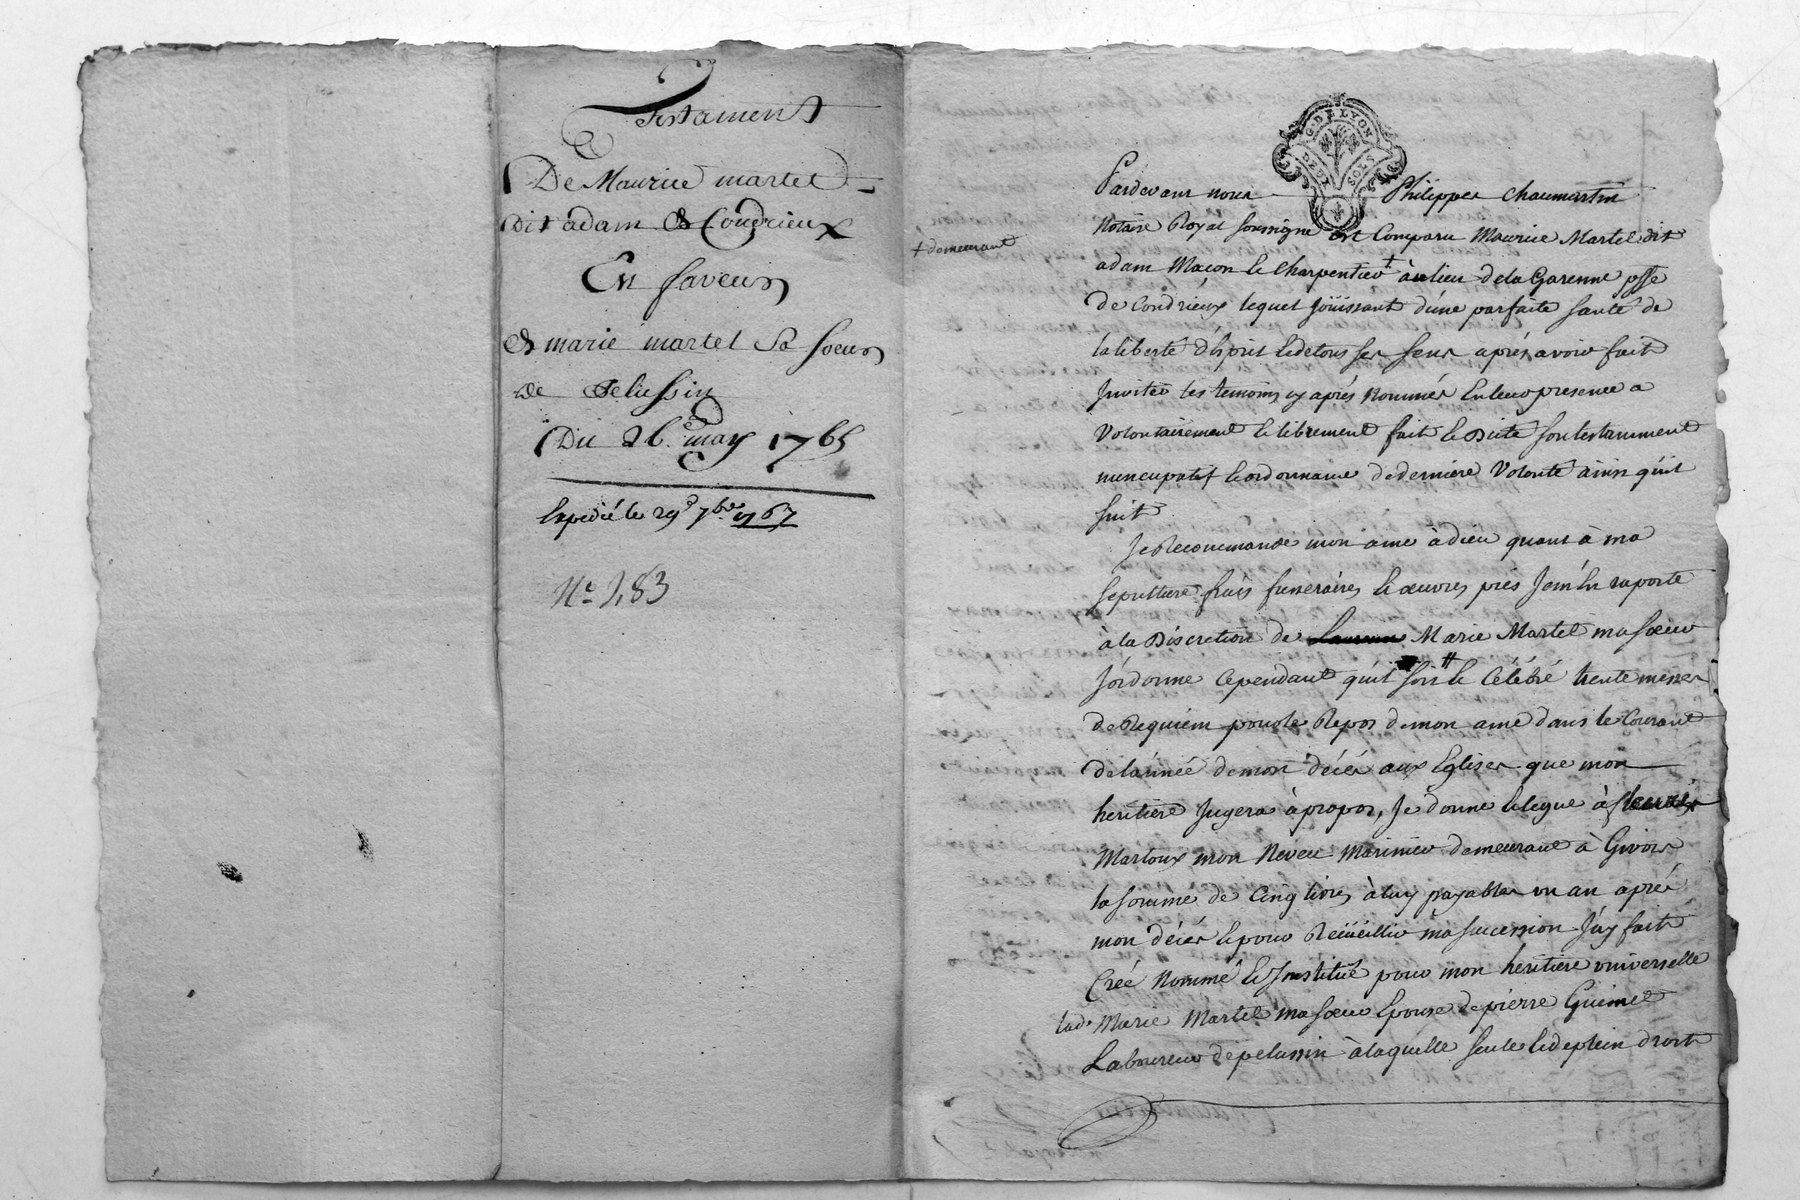 Testament
De Maurice martel
dit adam de Condrieux
En faveur
de marie martel Sa soeur
de pelussin
Du 26.e may 1765
Expedié le 29e 7bre 1767
No 183
G. DE LYON
DEUX SOLS
Pardevant nous Philippes Chaumartin
Notaire Royal soussigné est Comparu Maurice Martel dit
+ demeurant
adam Maçon & charpentier + au lieu de la Garenne psse
de Condrieux lequel joüissant d'une parfaite santé de
la liberté d'esprit & de tous ses sens aprés avoir fait
Inviter les temoins cy aprés Nommés En leur presence a
Volontairement & librement fait & Dicté son testamment
nuncupatif & ordonnance de derniere Volonté ainsi qu'il
suit
Je Recommande mon ame à dieu quant à ma
sepulture frais funeraires & œuvres pies Je m'en raporte
à la Discretion de Marie Martel ma sœur
J'ordonne cependant qu'il soit Célébré trente messes
de Requiem pour le Repos de mon ame dans le Courant
de l'année de mon décés aux Eglises que mon
heritiere Jugera à propos, Je donne & legue à
Martoux mon Neveu Marinier demeurant à Givors
la somme de Cinq livres à luy payables un an aprés
mon décés & pour Recüeillir ma succession J'ay fait
Créé Nommé & Institüé pour mon heritiere universelle
lad. Marie Martel ma sœur Epouse de pierre Guimet
Laboureur de pelussin à laquelle seule & de plein droit